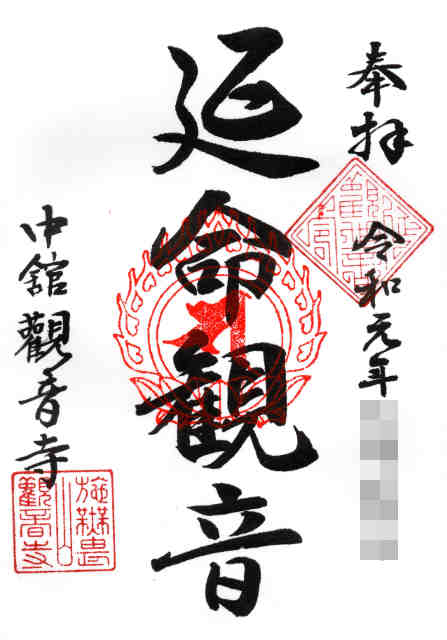 奉拝
令和元年
延命観音
中舘觀音寺